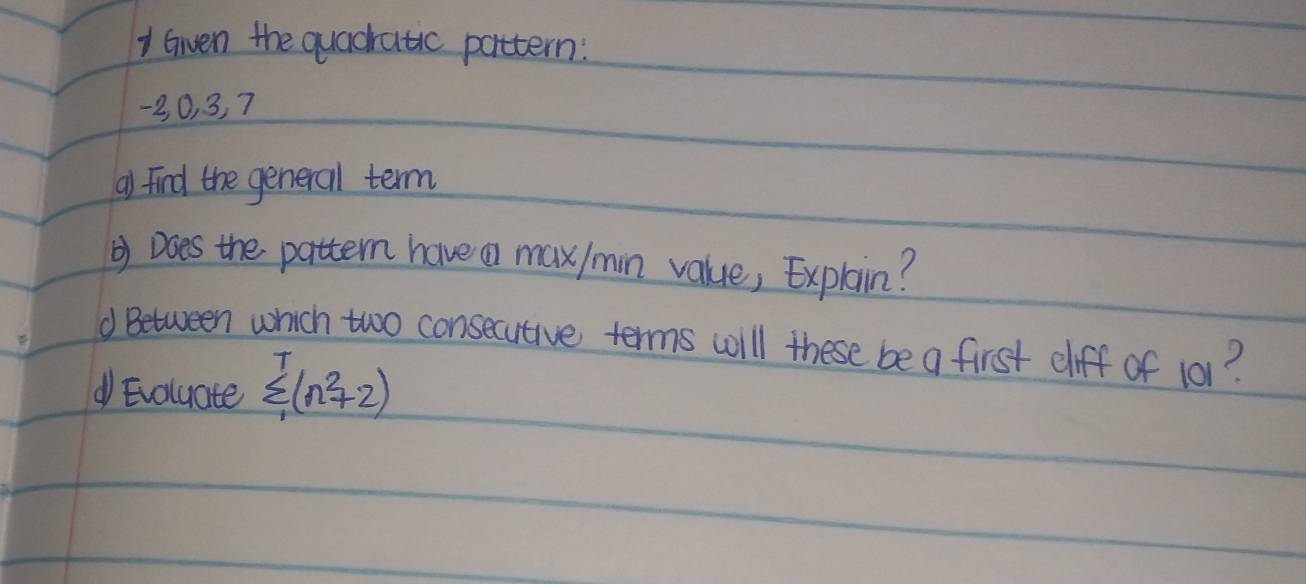 1 Given the quadratic pattern:
-2,0,3,7
a) Find the general term
b) Does the pattern have a max/min value, Explain?
c) Between which two consecutive terms will these be a first diff of 101?
d) Evaluate